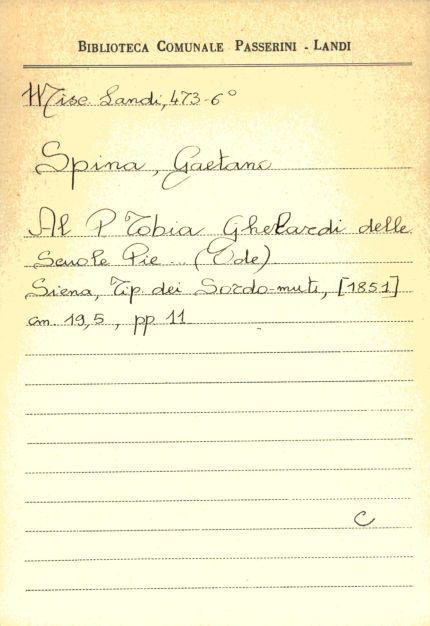 BIBLIOTECA COMUNALE PASSERINI - LANDI
Misc. Landi, 473-6°
Spina, Gaetano
Al P Tobia Ghelardi delle
Scuole Pie ... (Ode)
Siena, Tip. dei Sordo-muti, [1851]
cm. 19,5, pp 11
C